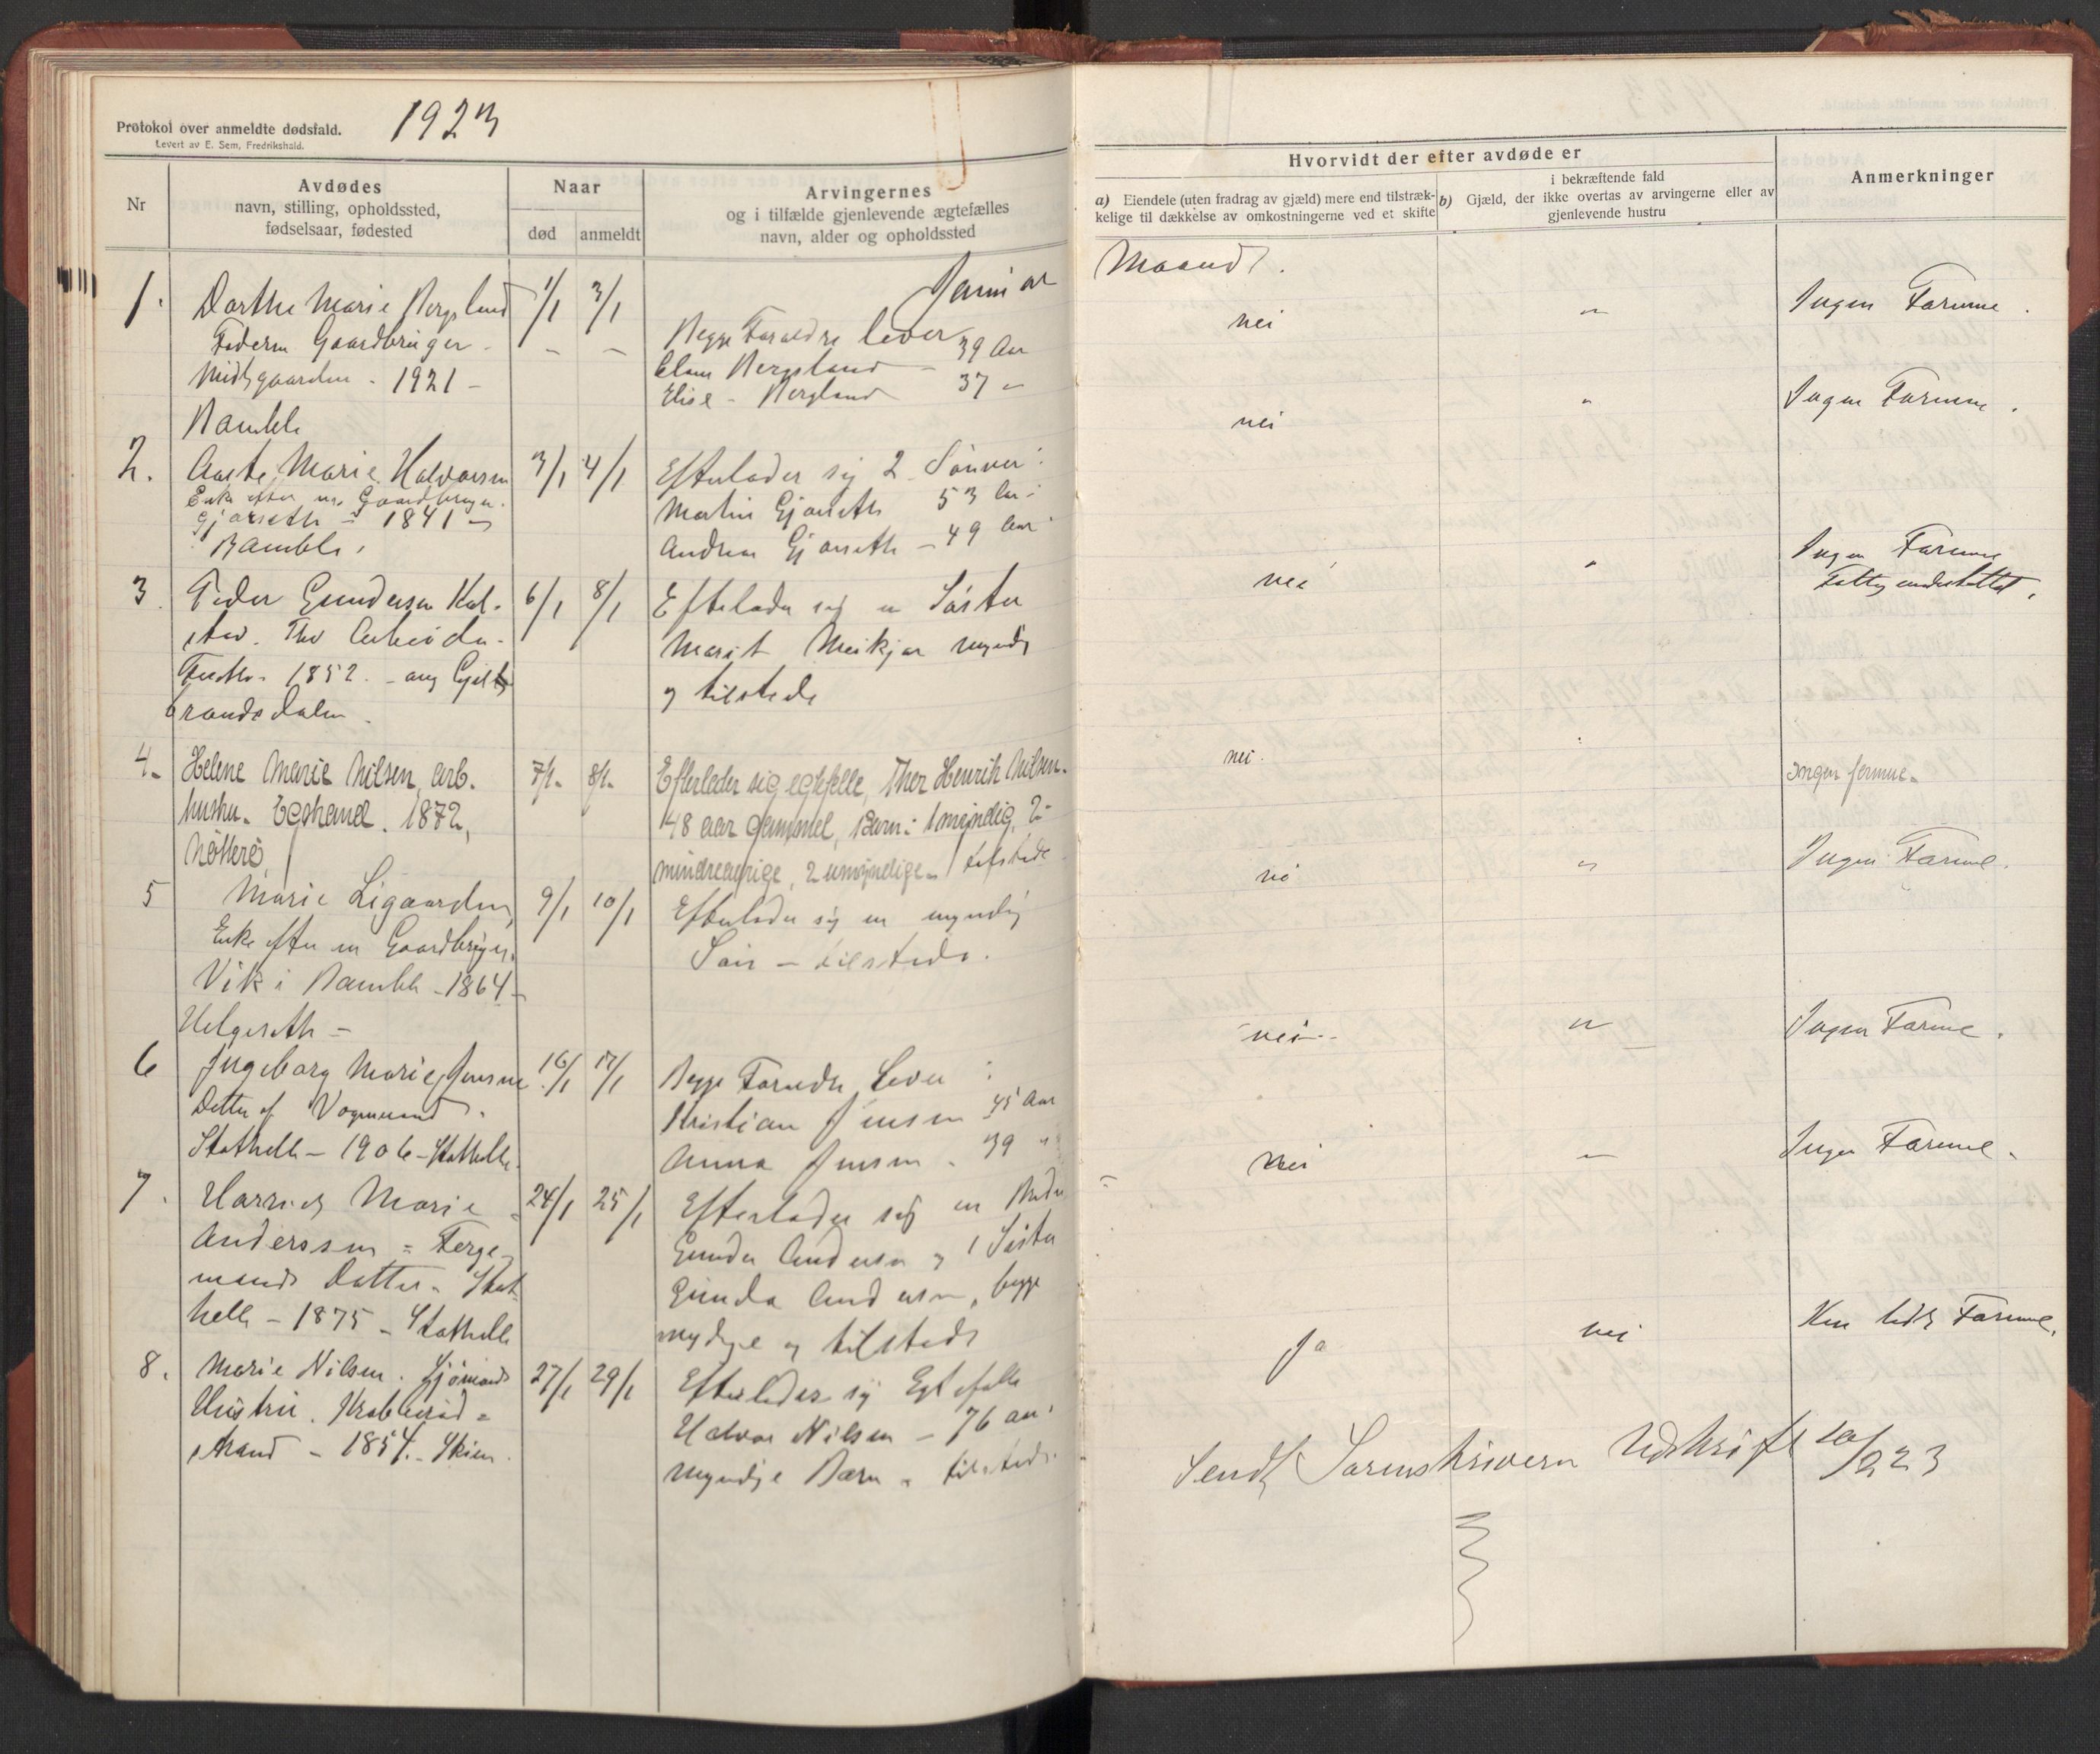 Protokol over anmeldte dødsfald. 1923
Levert av E. Sem, Fredrikshald.
Nr
Avdødes
navn, stilling, opholdssted,
fødselsaar, fødested
Naar
død
anmeldt
Arvingernes
og i tilfælde gjenlevende ægtefælles
navn, alder og opholdssted
Hvorvidt der efter avdøde er
a) Eiendele (uten fradrag av gjæld) mere end tilstræk-
kelige til dækkelse av omkostningerne ved et skifte
i bekræftende fald
b) Gjæld, der ikke overtas av arvingerne eller av
gjenlevende hustru
Anmerkninger
Januar Maaned.
1. Dorthe Marie Bergland 1/1 3/1
Faderen Gaardbruger
Midtgaarden - 1921 -
Bamble
Begge Foraeldre lever
Claus Bergland - 39 Aar
Elise - Bergland 37 "
nei " Ingen Formue.
2. Aaste Marie Halvorsen 3/1 4/1
Enke efter Gaardbruger
Gjærseth - 1841 -
Bamble.
Efterlader sig 2 Sønner:
Martin Gjærseth 53 Aar
Andreas Gjærseth - 49 Aar
nei " Ingen Formue.
3 Peder Gundersen Kal- 6/1 8/1
stad. Arbeider
1852. - Gul
brandsdalen.
Efterlader sig en Søster
Marit myndig
og tilstede
nei " Ingen Formue
Fattigunderstøttet.
4. Helene Marie Nilsen, arb. 7/1. 8/1.
hustru. 1872,
Nøtterø
Efterlader sig egtefelle, Thor Henrik Nilsen.
48 aar gammel, Barn: 1 myndig, 2
mindreaarige, 2 umyndige. tilstede
nei. Ingen formue.
5 Marie Ligaarden, 9/1 10/1
Enke efter en Gaardbruger.
Vik i Bamble - 1864 -
Helgeseth -
Efterlader sig en myndig
Søn - tilstede.
nei " Ingen Formue.
6 Ingeborg Marie Jensen 16/1 17/1
Datter af Vognmand.
Stathelle - 1906 - Stathelle.
Begge Foraeldre lever:
Kristian Jensen 45 Aar
Anna Jensen - 39 "
nei " Ingen Formue.
7. Harriet Marie 24/1 25/1
Anderssen = Ferge-
mands Datter - Stat
helle - 1875 - Stathelle
Efterlader sig en Broder
Gunder Andersen og 1 Søster
Gunda Andersen, begge
myndige og tilstede
nei " Ingen Formue.
8. Marie Nilsen. Sjømands 27/1 29/1
Hustru. Krabberød =
strand - 1854. - Skien.
Efterlader sig Egtefelle
Halvor Nilsen - 76 aar
myndige Barn - tilstede.
Ja nei Kun lidt Formue.
Sendt Sorenskriveren Udskrift 10/2 23